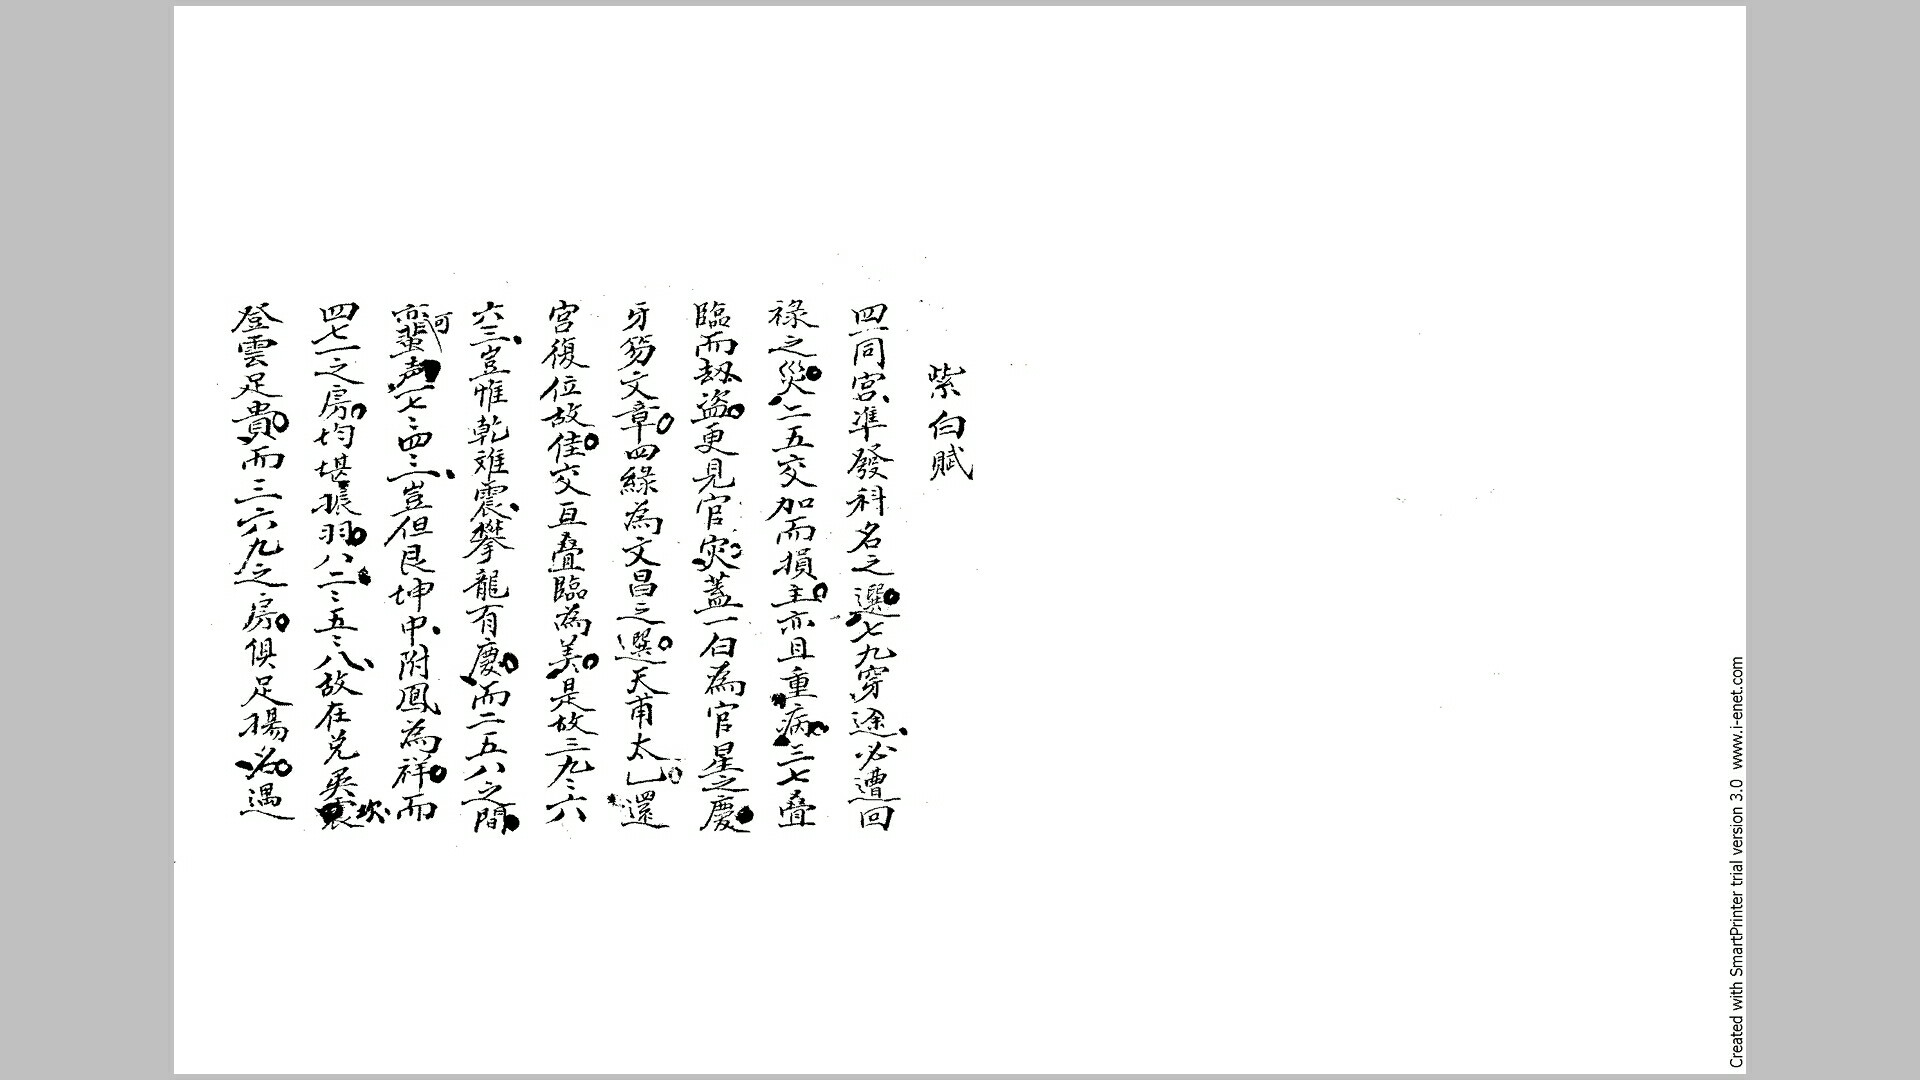 紫白賦
四一同宮準發科名之選七九穿途必遭回
祿之災二五交加而損主亦且重病三七疊
臨而劫盜更見官災蓋一白為官星之慶
牙笏文章四綠為文昌之選天甫太乙還
宮復位故佳交亘疊臨為美是故三九〻六
六三豈惟乾难震攀龍有慶而二五八之間
亦可蜚声一七〻四三豈但艮坤中附鳳為祥而
四七一之房均堪振羽八二〻五〻八故在兌巽坎
登雲足貴而三六九之房俱足揚名遇
Created with SmartPrinter trial version 3.0 www.i-enet.com